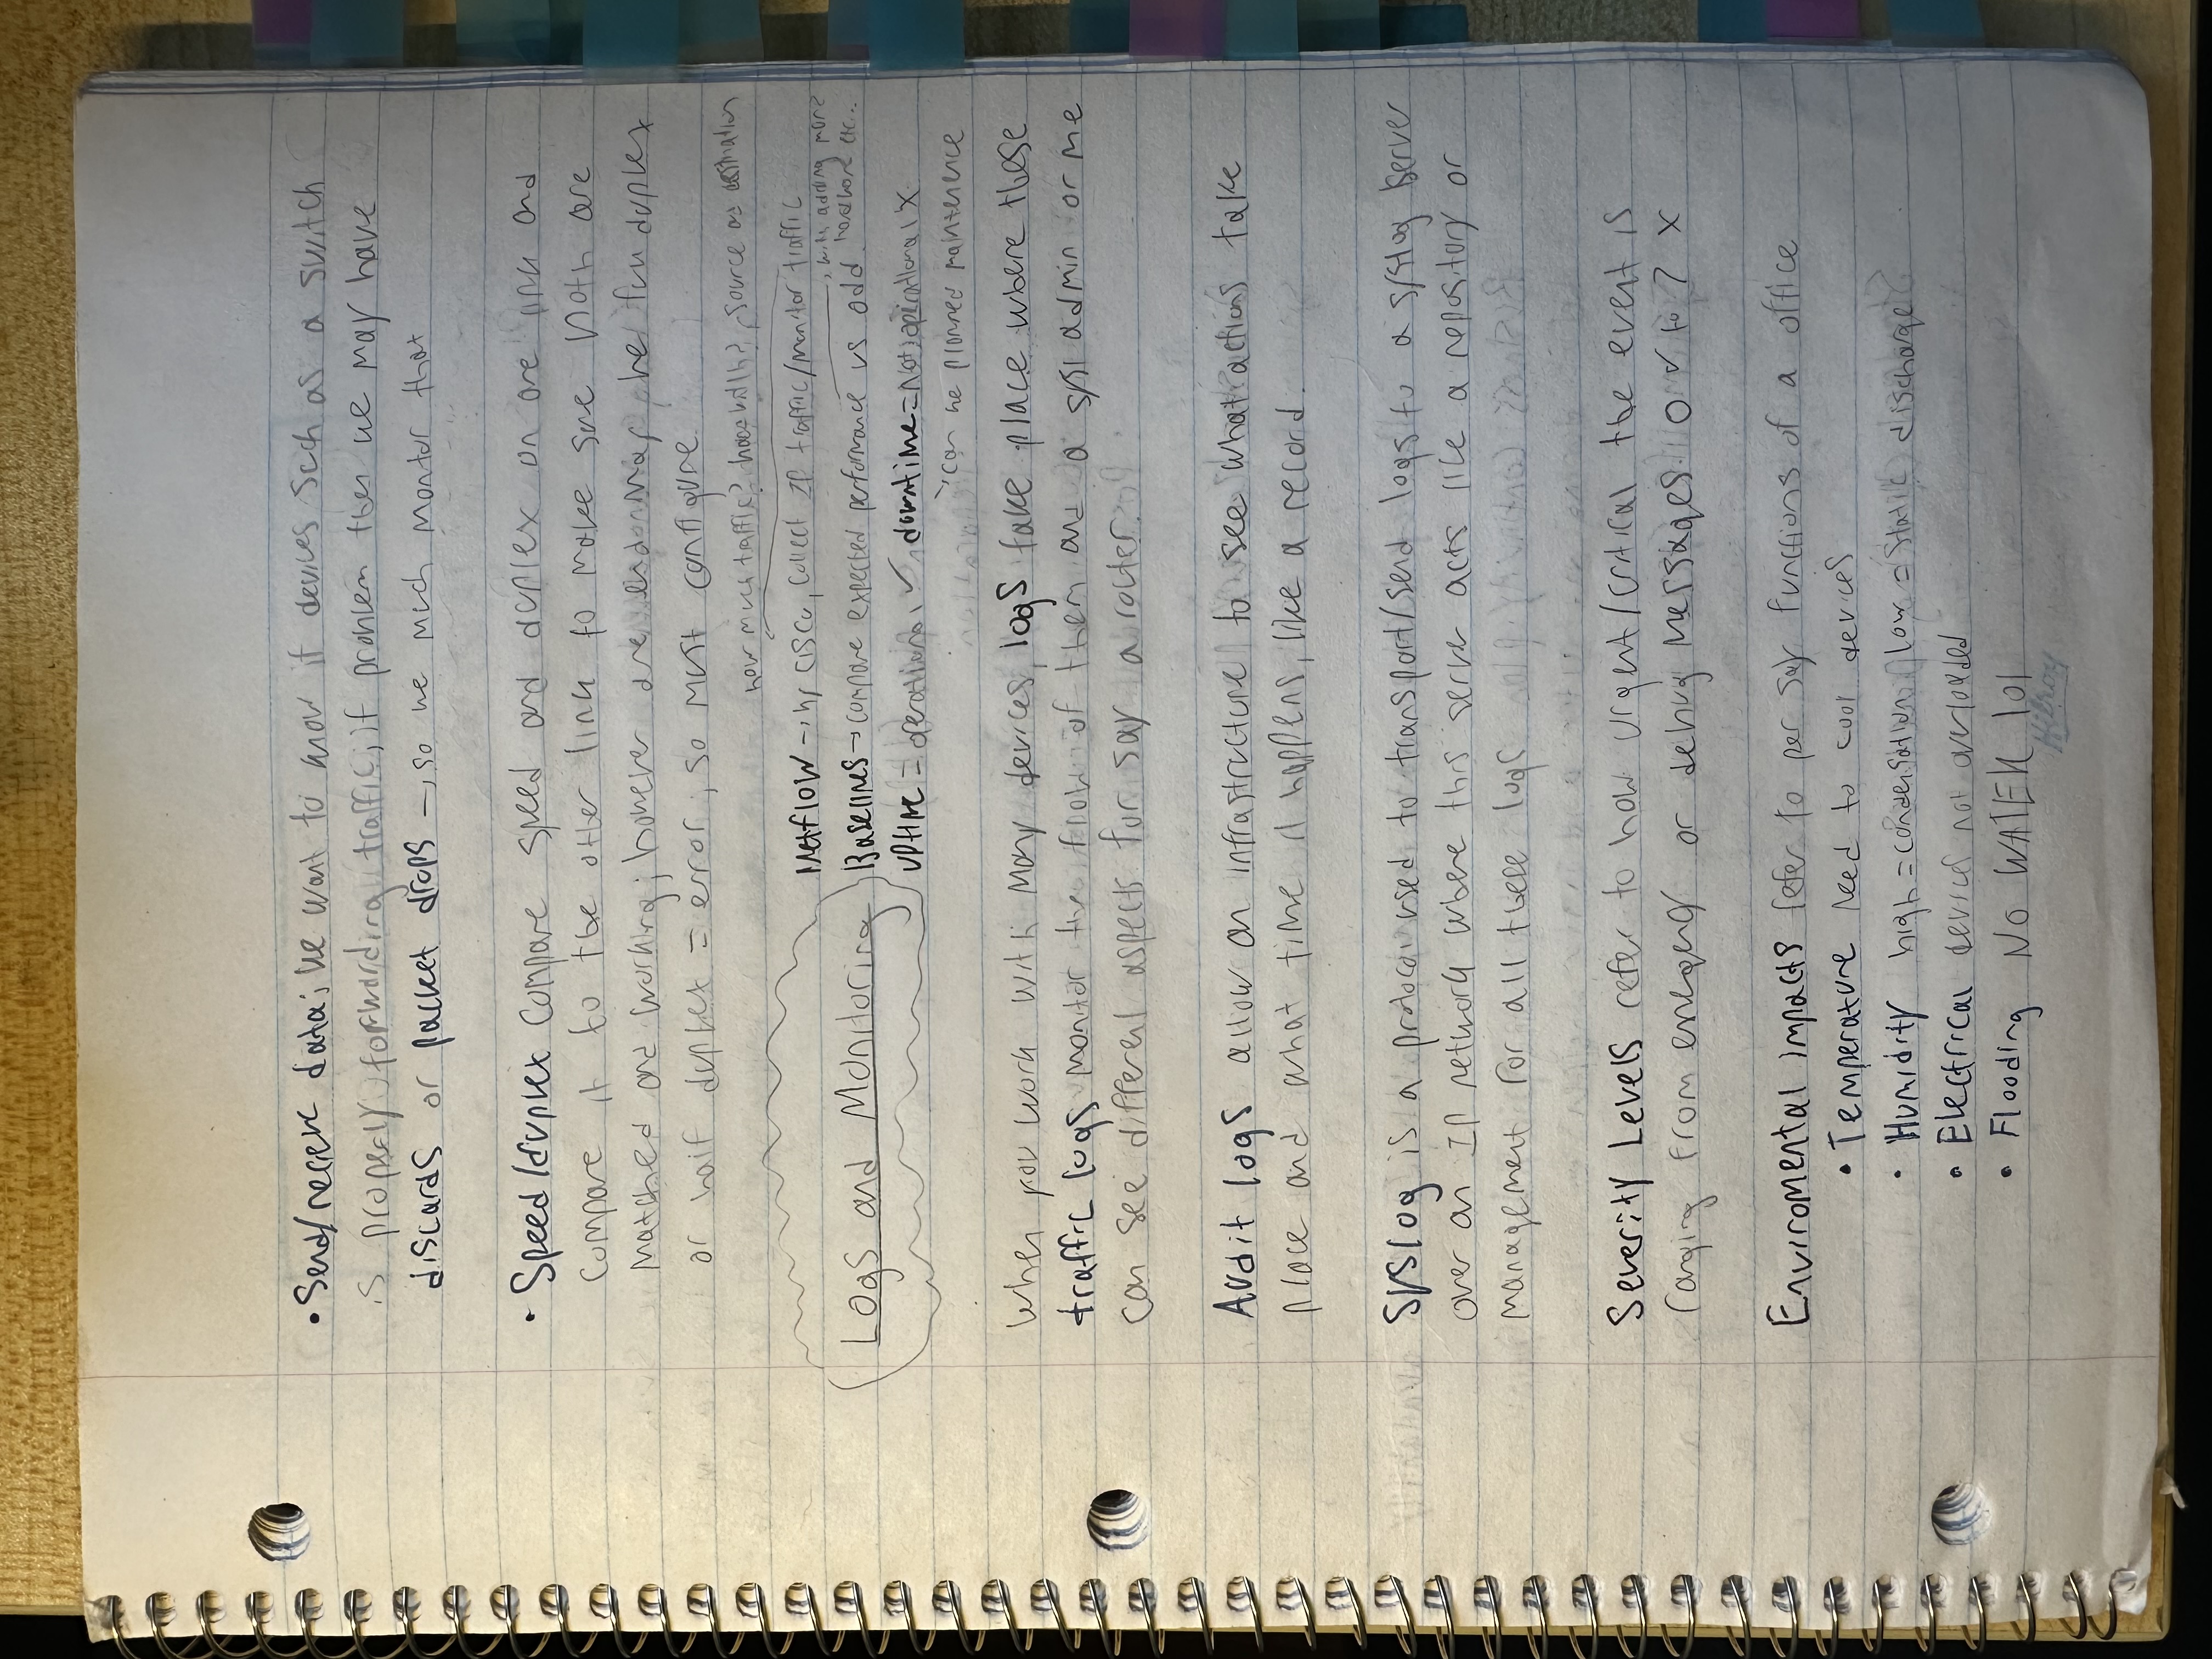 • Send/recieve data; we want to know if devices such as a switch
is properly forwarding traffic; if problem then we may have
discards or packet drops → so we much monitor that
• Speed/duplex compare speed and duplex on one link and
compare it to the other link to make sure both are
matched and working; however one end may be full duplex
or half duplex = error; so must configure
how much traffic? bandwidth? source and destination
Netflow → by cisco, collect IP traffic/monitor traffic
→ with adding more
hardware etc...
Logs and Monitoring
Baselines → compare expected performance vs odd
uptime = operational ✓ downtime = Not operational X
→ can be planned maintenence
When you work with many devices, logs take place where these
traffic logs monitor the flow of them and a sys admin or me
can see different aspects for say a router.
Audit logs allow an infrastructure to see what actions take
place and what time it happens, like a record.
Syslog is a protocol used to transport/send logs to a syslog server
over an IP network where this server acts like a repository or
management for all these logs
Severity Levels refer to how urgent/critical the event is
ranging from emergency or debug messages 0 ✓ to 7 X
Enviromental impacts refer to per say functions of a office
• Temperature need to cool devices
• Humidity high = condensation low = static discharge
• Electrical devices not overloaded
• Flooding NO WATER lol
Hilroy